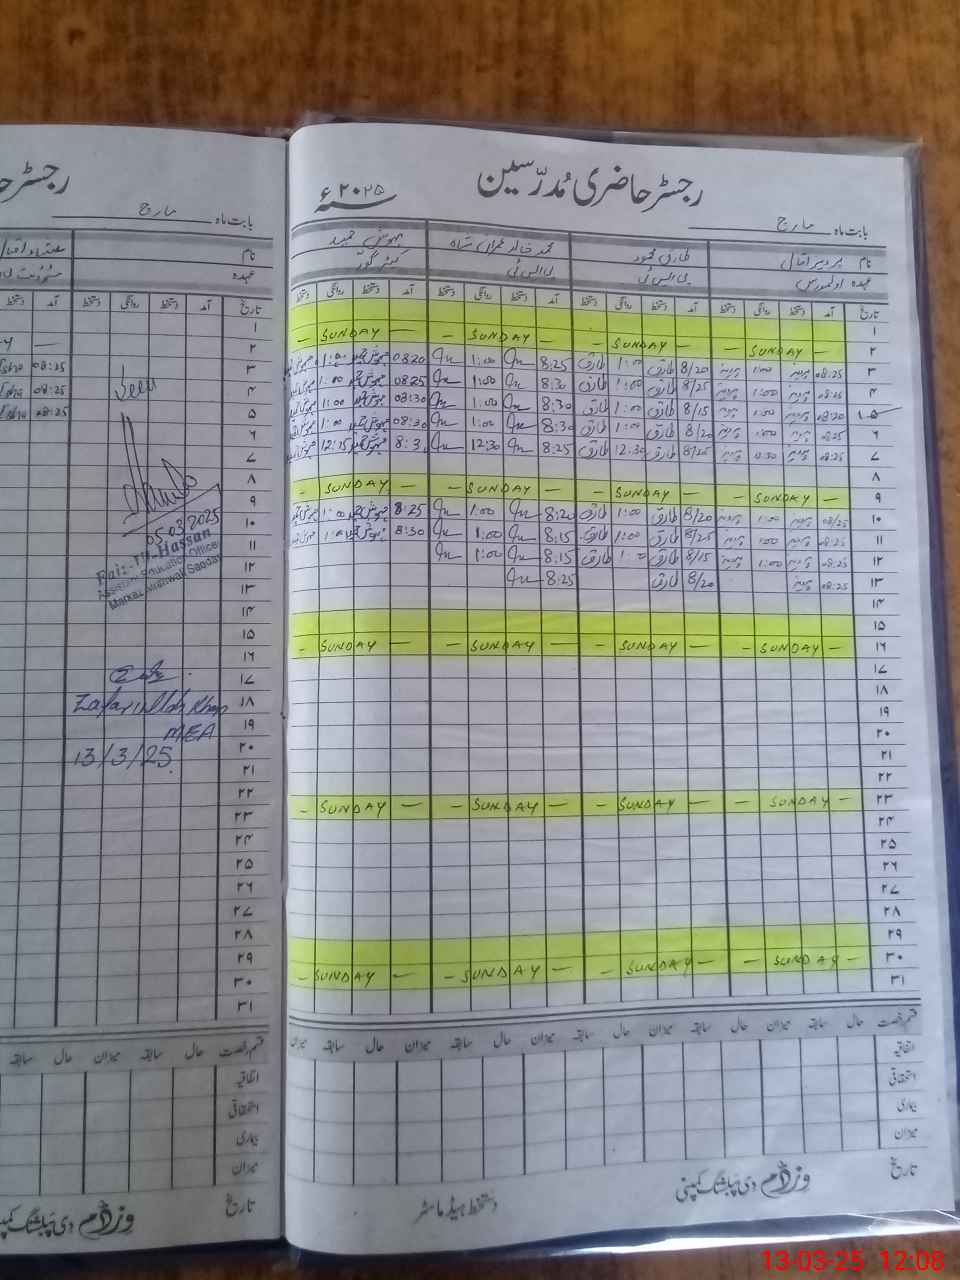 رجسٹر حاضری مُدرّسین
سنہ ۲۰۲۵ء
بابت ماہ مارچ
نام پرویز اقبال طارق محمود محمد خالد عمران شاہ
عہدہ پی ایس ٹی پی ایس ٹی
تاریخ آمد دستخط روانگی دستخط آمد دستخط روانگی دستخط آمد دستخط روانگی دستخط آمد دستخط روانگی دستخط
۱
۲ — SUNDAY — — SUNDAY — — SUNDAY — — SUNDAY —
۳ 08:25 1:00 8/20 طارق 1:00 طارق 8:25 1:00 0820 1:00
۴ 08:25 1:00 8/25 طارق 1:00 طارق 8:30 1:00 0825 1:00
۵ 08:20 1:00 8/15 طارق 1:00 طارق 8:30 1:00 08:30 1:00
۶ 08:25 1:00 8/20 طارق 1:00 طارق 8:30 1:00 08:30 1:00
۷ 08:25 12:30 8/25 طارق 12:30 طارق 8:25 12:30 8:3 12:15
۸
۹ — SUNDAY — — SUNDAY — — SUNDAY — — SUNDAY —
۱۰ 08/25 1:00 8/20 طارق 1:00 طارق 8:20 1:00 8:25 1:00
۱۱ 08:25 1:00 8/25 طارق 1:00 طارق 8:15 1:00 8:30 1:00
۱۲ 08:25 1:00 8/15 طارق 1:00 طارق 8:15 1:00
۱۳ 08:25 8/20 طارق 8:25
۱۴
۱۵
۱۶ — SUNDAY — — SUNDAY — — SUNDAY — — SUNDAY —
۱۷
۱۸
۱۹
۲۰
۲۱
۲۲
۲۳ — SUNDAY — — SUNDAY — — SUNDAY — — SUNDAY —
۲۴
۲۵
۲۶
۲۷
۲۸
۲۹
۳۰ — SUNDAY — — SUNDAY — — SUNDAY — — SUNDAY —
۳۱
قسم رخصت حال سابقہ میزان حال سابقہ میزان حال سابقہ میزان حال سابقہ میزان
اتفاقیہ
استحقاقی
بیماری
میزان
تاریخ
وزڈم دی پبلشنگ کمپنی
دستخط ہیڈ ماسٹر
رجسٹر حا
بابت ماہ مارچ
نام
عہدہ
تاریخ آمد دستخط روانگی دستخط آمد دستخط
۱
۲
۳ 08:25
۴ 08:25
۵ 08:25
۶
۷
۸
۹
۱۰
۱۱
۱۲
۱۳
۱۴
۱۵
۱۶
۱۷
۱۸
۱۹
۲۰
۲۱
۲۲
۲۳
۲۴
۲۵
۲۶
۲۷
۲۸
۲۹
۳۰
۳۱
Seen
05.03.2025
Faiz-Ul-Hassan
Assistant Education Officer
Markaz Mithwali
Zafar Ullah Khan
MEA
13/3/25
قسم رخصت حال سابقہ میزان حال سابقہ
اتفاقیہ
استحقاقی
بیماری
میزان
تاریخ
وزڈم دی پبلشنگ کمپنی
13-03-25 12:08